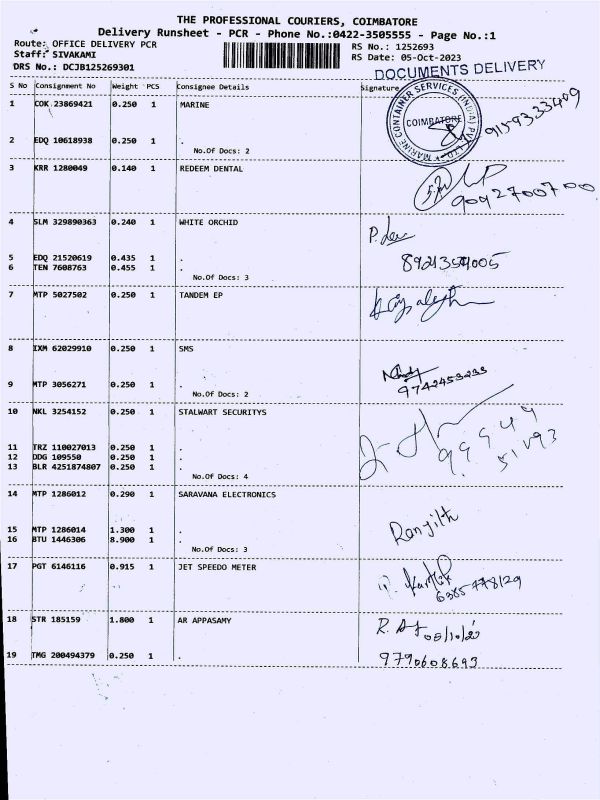 THE PROFESSIONAL COURIERS, COIMBATORE
Delivery Runsheet - PCR - Phone No.:0422-3505555 - Page No.:1
Route: OFFICE DELIVERY PCR RS No.: 1252693
Staff: SIVAKAMI RS Date: 05-Oct-2023
DRS No.: DCJB125269301 DOCUMENTS DELIVERY
S No Consignment No Weight PCS Consignee Details Signature
1 COK 23869421 0.250 1 MARINE
MARINE CONTAINER SERVICES (INDIA) PVT. LTD.
COIMBATORE
9159333409
2 EDQ 10618938 0.250 1 .
No.Of Docs: 2
3 KRR 1280049 0.140 1 REDEEM DENTAL
9092700700
4 SLM 329890363 0.240 1 WHITE ORCHID
5 EDQ 21520619 0.435 1 .
6 TEN 7608763 0.455 1 .
No.Of Docs: 3
7 MTP 5027502 0.250 1 TANDEM EP
8 IXM 62029910 0.250 1 SMS
9 MTP 3056271 0.250 1 . 9742453233
No.Of Docs: 2
10 NKL 3254152 0.250 1 STALWART SECURITYS
11 TRZ 110027013 0.250 1 .
12 DDG 109550 0.250 1 .
13 BLR 4251874807 0.250 1 .
No.Of Docs: 4
14 MTP 1286012 0.290 1 SARAVANA ELECTRONICS
Ranjith
15 MTP 1286014 1.300 1 .
16 BTU 1446306 8.900 1 .
No.Of Docs: 3
17 PGT 6146116 0.915 1 JET SPEEDO METER
6385778129
18 STR 185159 1.800 1 AR APPASAMY
05/10/23
19 TMG 200494379 0.250 1 . 9790608693